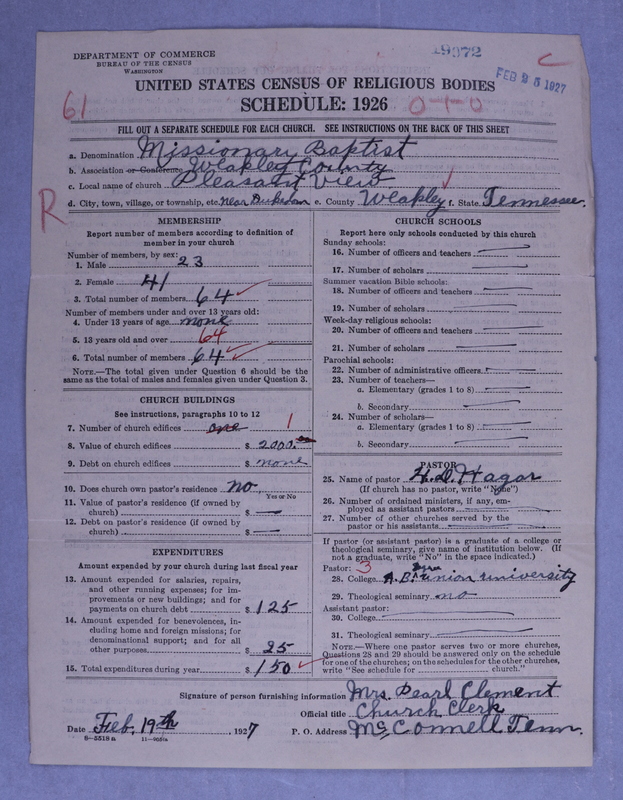 DEPARTMENT OF COMMERCE
BUREAU OF THE CENSUS
WASHINGTON
19972
FEB 25 1927
C
UNITED STATES CENSUS OF RELIGIOUS BODIES
SCHEDULE: 1926
0-1-0
61
FILL OUT A SEPARATE SCHEDULE FOR EACH CHURCH. SEE INSTRUCTIONS ON THE BACK OF THIS SHEET
a. Denomination Missionary Baptist
b. Association or Conference Weakley County
c. Local name of church Pleasant View
d. City, town, village, or township, etc. Near Dukedom e. County Weakley f. State Tennessee.
R
MEMBERSHIP
Report number of members according to definition of
member in your church
Number of members, by sex:
1. Male 23
2. Female 41
3. Total number of members 64
Number of members under and over 13 years old:
4. Under 13 years of age none
5. 13 years old and over 64
6. Total number of members 64
NOTE.—The total given under Question 6 should be the
same as the total of males and females given under Question 3.
CHURCH BUILDINGS
See instructions, paragraphs 10 to 12
7. Number of church edifices one 1
8. Value of church edifices $ 2000.
9. Debt on church edifices $ none
10. Does church own pastor's residence No
Yes or No
11. Value of pastor's residence (if owned by
church) $ —
12. Debt on pastor's residence (if owned by
church) $ —
EXPENDITURES
Amount expended by your church during last fiscal year
13. Amount expended for salaries, repairs,
and other running expenses; for im-
provements or new buildings; and for
payments on church debt $ 125
14. Amount expended for benevolences, in-
cluding home and foreign missions; for
denominational support; and for all
other purposes $ 25
15. Total expenditures during year $ 150
CHURCH SCHOOLS
Report here only schools conducted by this church
Sunday schools:
16. Number of officers and teachers
17. Number of scholars
Summer vacation Bible schools:
18. Number of officers and teachers
19. Number of scholars
Week-day religious schools:
20. Number of officers and teachers
21. Number of scholars
Parochial schools:
22. Number of administrative officers
23. Number of teachers—
a. Elementary (grades 1 to 8)
b. Secondary
24. Number of scholars—
a. Elementary (grades 1 to 8)
b. Secondary
PASTOR
25. Name of pastor H. D. Hagar
(If church has no pastor, write "None")
26. Number of ordained ministers, if any, em-
ployed as assistant pastors
27. Number of other churches served by the
pastor or his assistants
If pastor (or assistant pastor) is a graduate of a college or
theological seminary, give name of institution below. (If
not a graduate, write "No" in the space indicated.)
Pastor: 3
28. College A.B. union university
29. Theological seminary no
Assistant pastor:
30. College
31. Theological seminary
NOTE.—Where one pastor serves two or more churches,
Questions 28 and 29 should be answered only on the schedule
for one of the churches; on the schedules for the other churches,
write "See schedule for church."
Signature of person furnishing information Mrs. Pearl Clement
Official title Church Clerk
Date Feb. 19th, 1927 P. O. Address McConnell Tenn.
8—5518 a